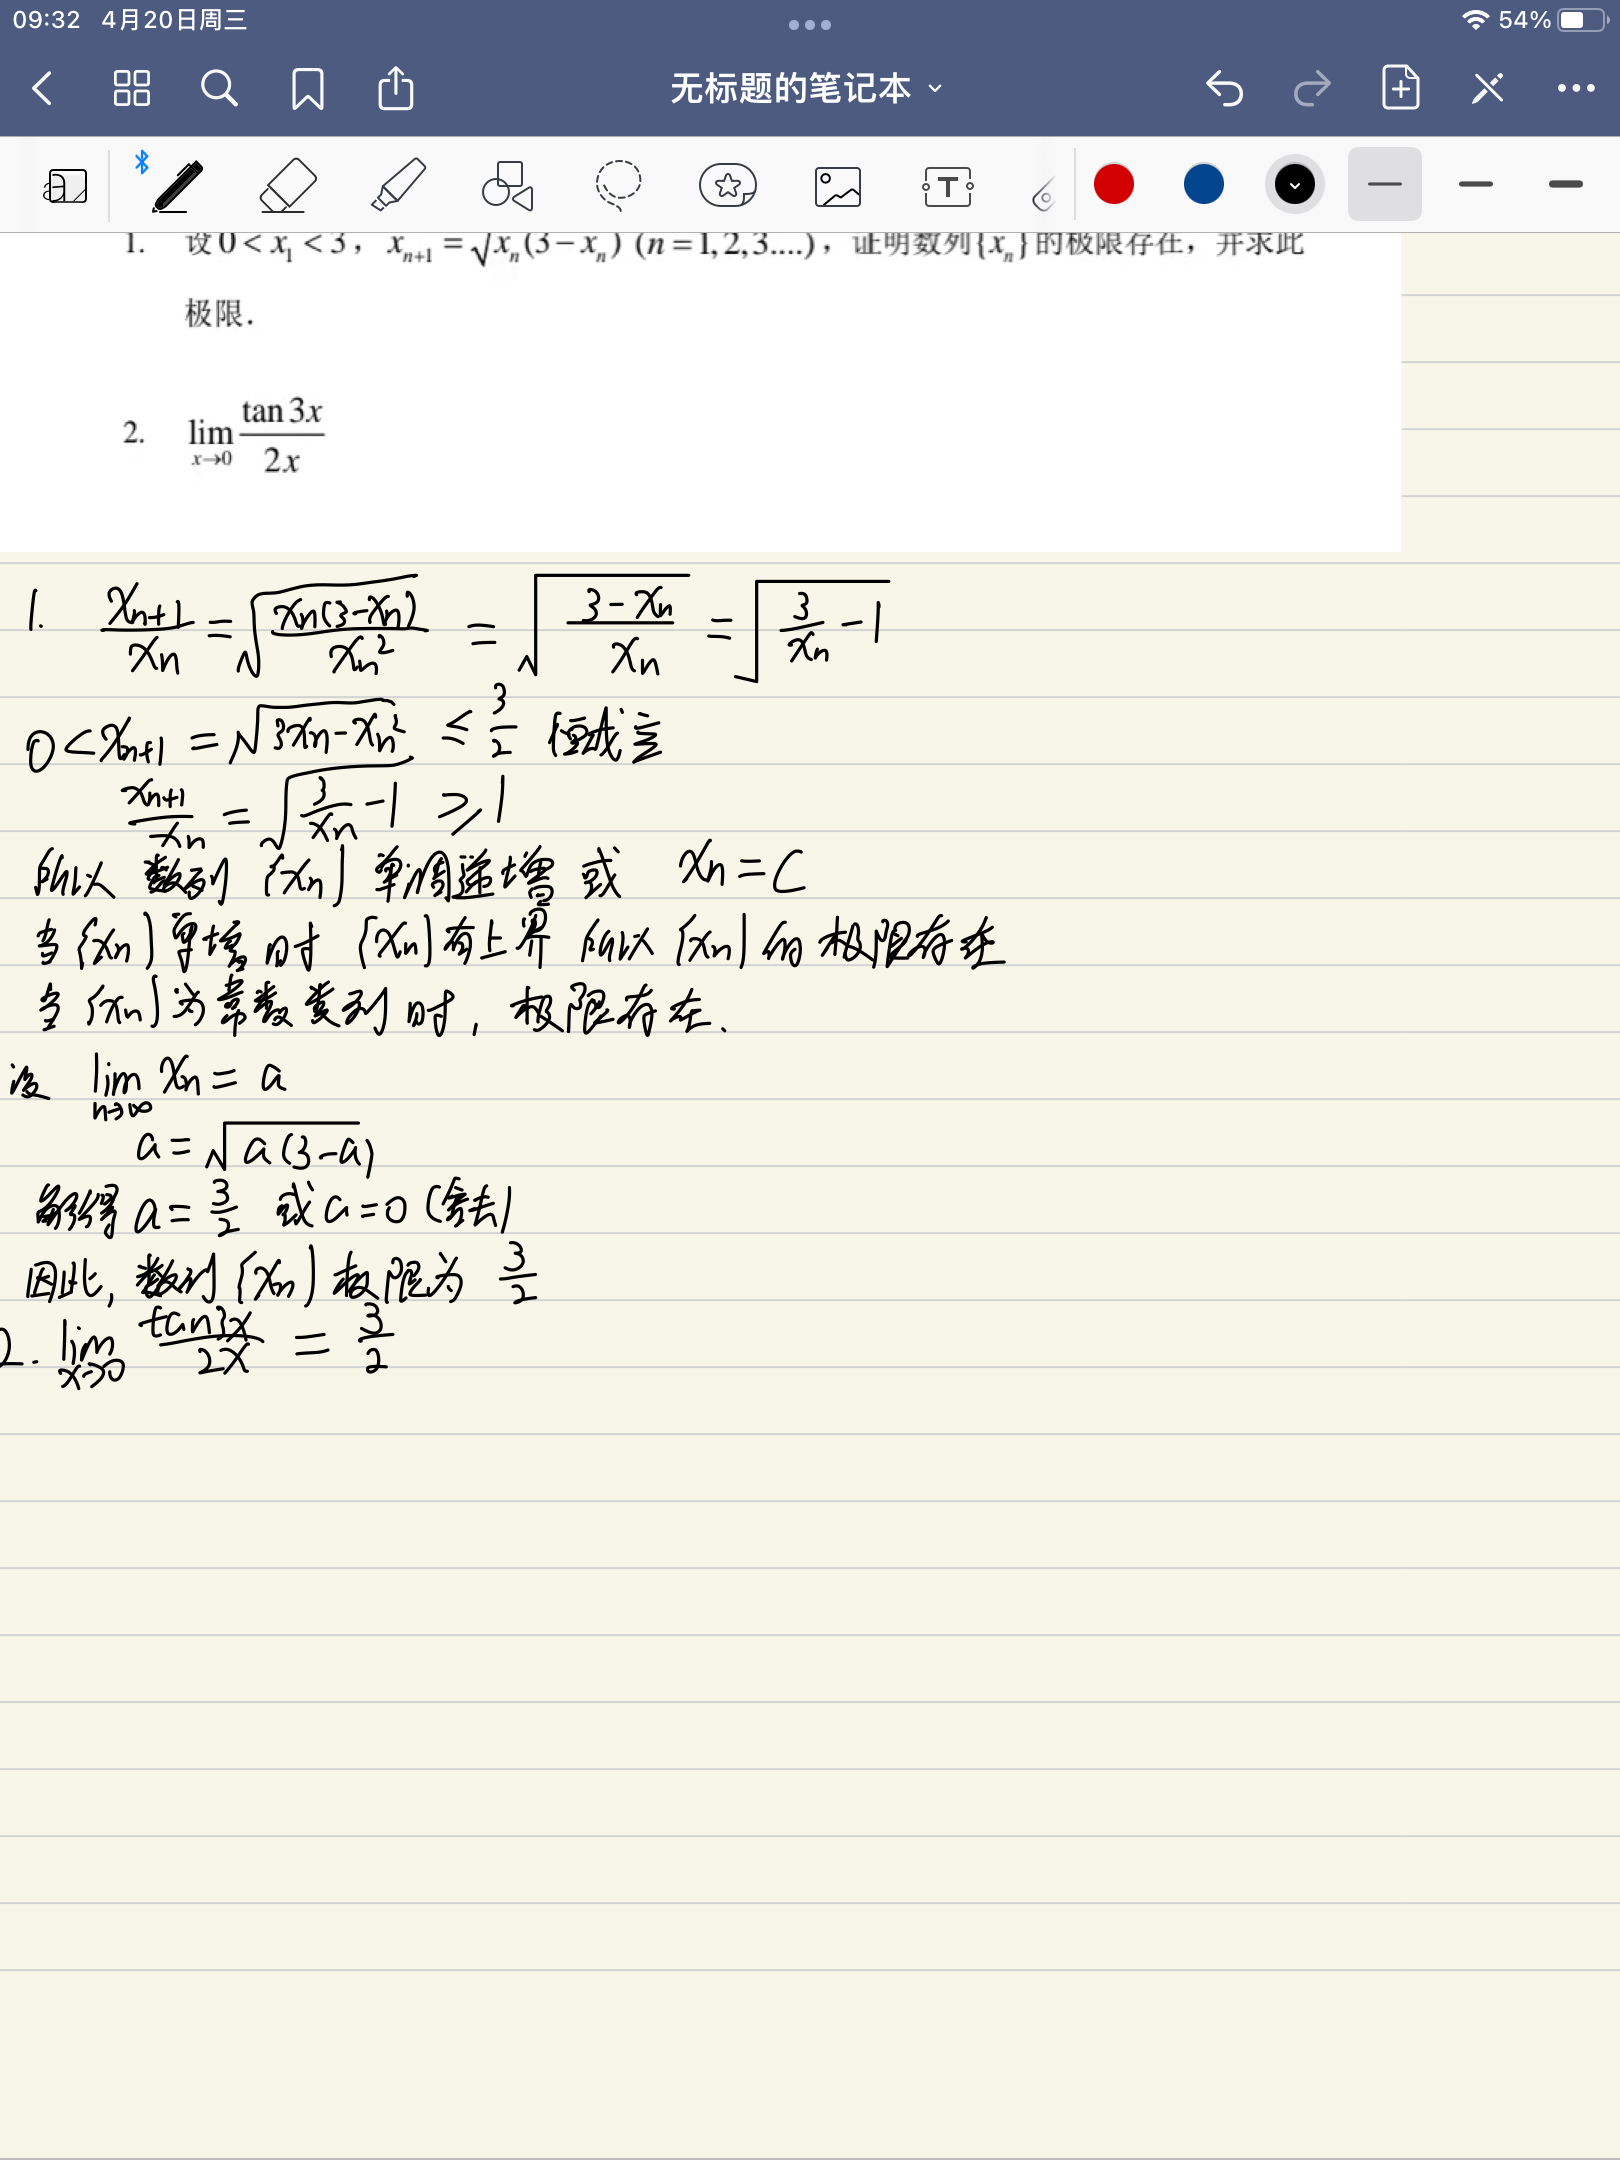 09:32 4月20日周三
54%
无标题的笔记本
T
1. 设0 < x₁ < 3, xₙ₊₁ = √xₙ(3−xₙ) (n = 1,2,3....), 证明数列{xₙ}的极限存在, 并求此
极限.
2. lim x→0 tan 3x / 2x
1. xₙ₊₁/xₙ = √(xₙ(3-xₙ)/xₙ²) = √((3-xₙ)/xₙ) = √(3/xₙ - 1)
0 < xₙ₊₁ = √(3xₙ-xₙ²) ≤ 3/2 恒成立
xₙ₊₁/xₙ = √(3/xₙ - 1) ≥ 1
所以 数列 {xₙ} 单调递增 或 xₙ = C
当{xₙ}单增时 {xₙ}有上界 所以{xₙ}的极限存在
当{xₙ}为常数类列时, 极限存在.
设 lim n→∞ xₙ = a
a = √a(3-a)
解得 a = 3/2 或 a = 0 (舍去)
因此, 数列{xₙ}极限为 3/2
2. lim x→0 tan3x / 2x = 3/2